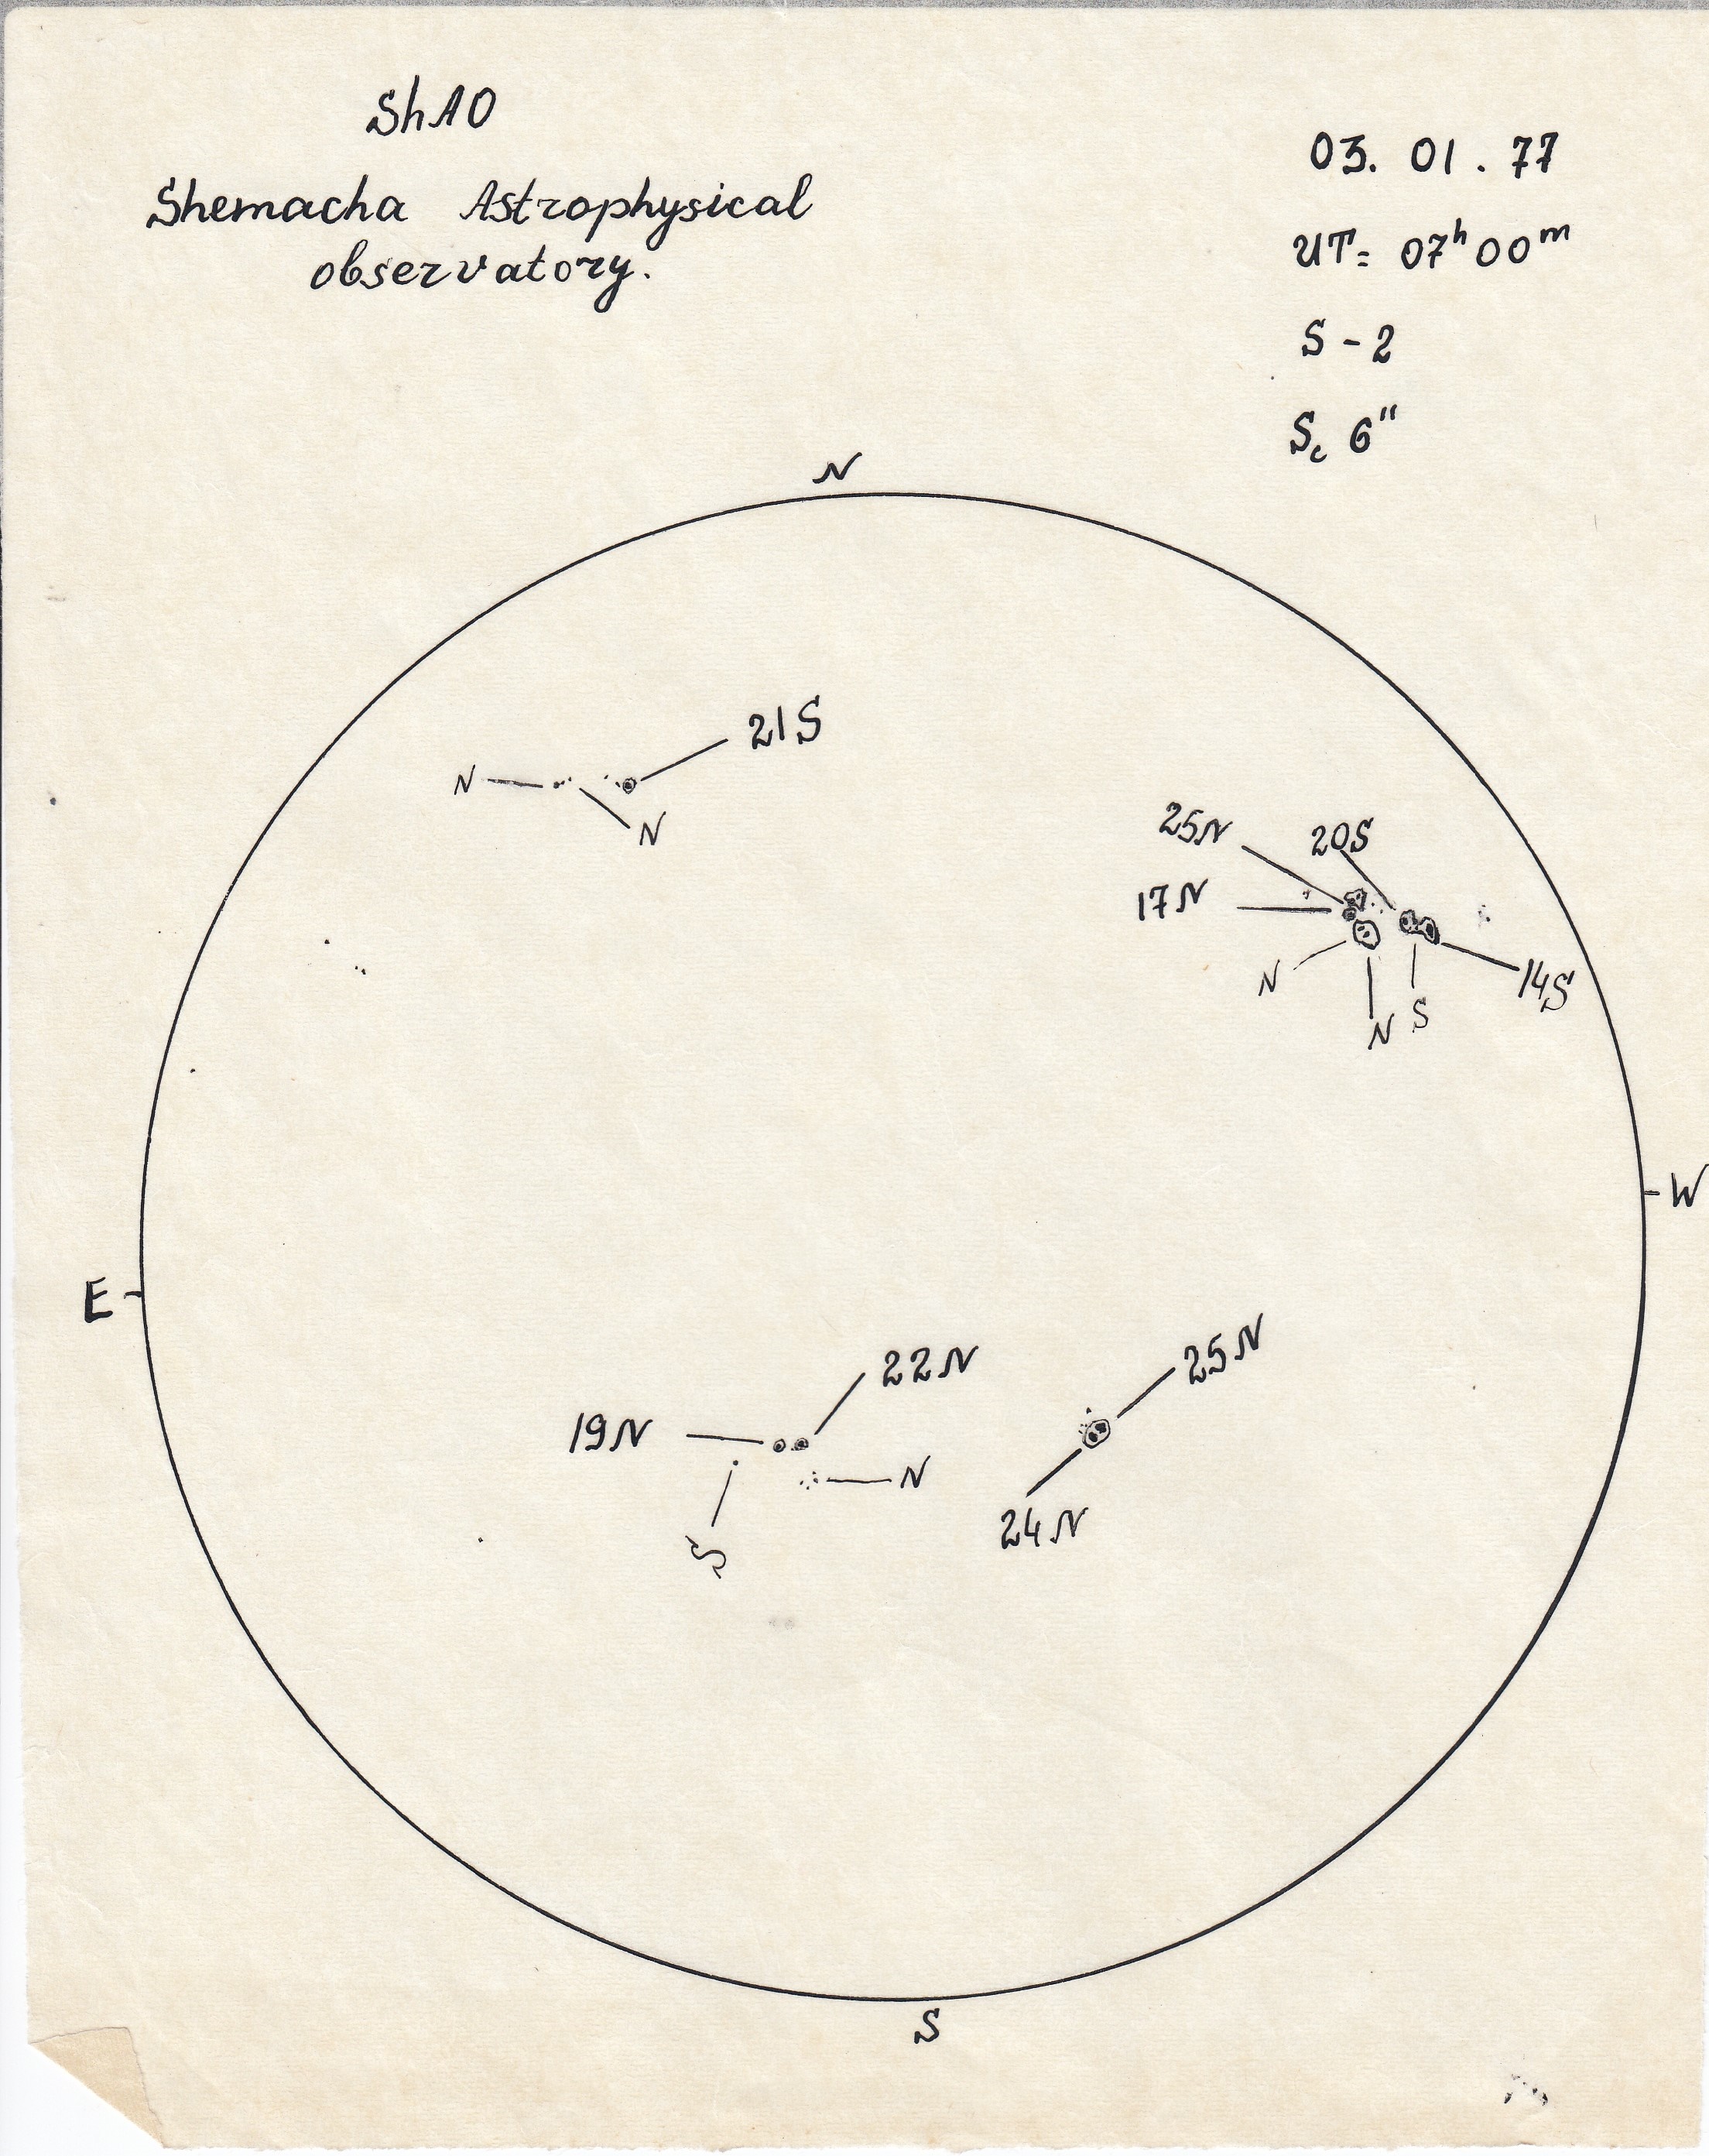 ShAO
Shemacha Astrophysical
observatory.
03. 01. 77
UT= 07h 00m
S - 2
Sc 6"
N
21S
N
N
25N
20S
17N
14S
N
N
S
W
E
22N
25N
19N
N
24N
S
S